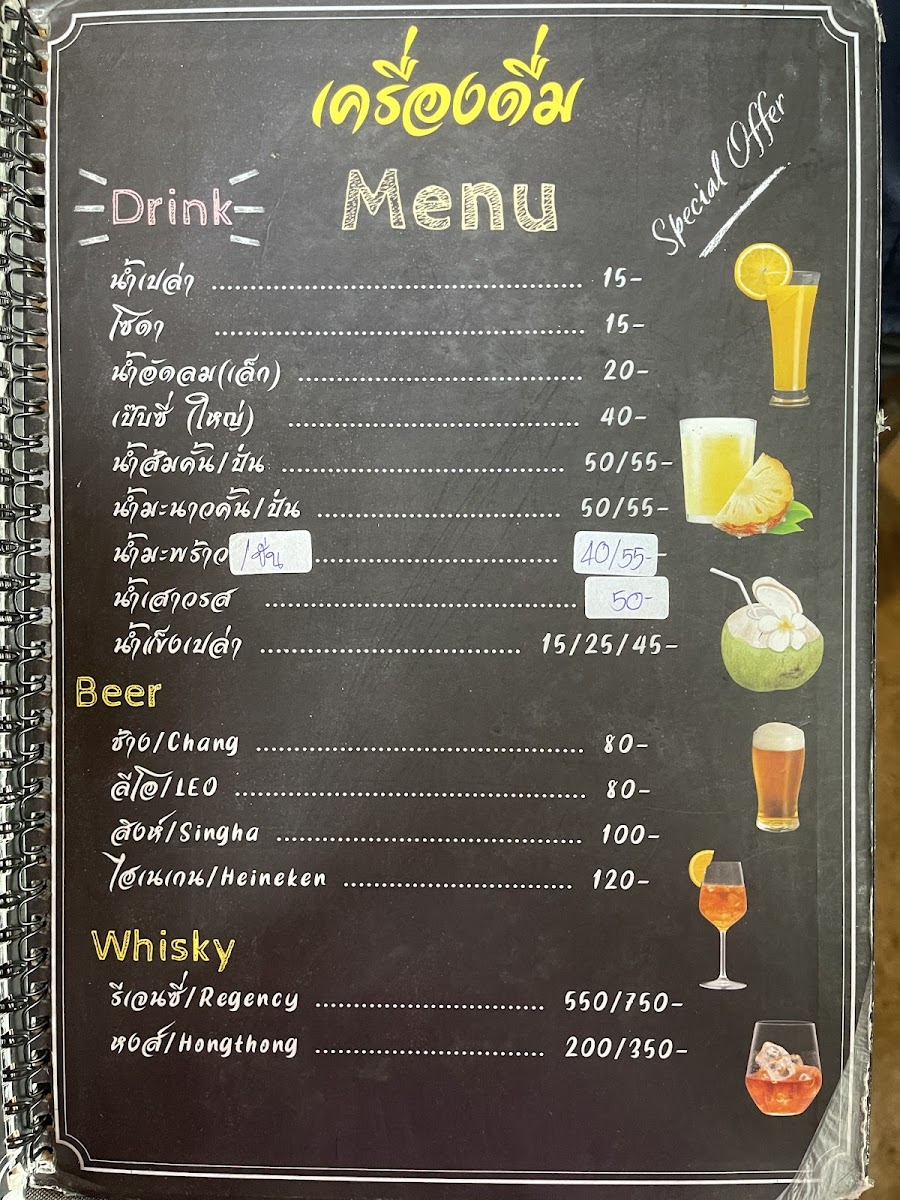 เครื่องดื่ม
Menu
Special Offer
Drink
น้ำเปล่า ........................ 15-
โซดา ........................ 15-
น้ำอัดลม(เล็ก) ........................ 20-
เป๊บซี่ (ใหญ่) ........................ 40-
น้ำส้มคั้น/ปั่น ........................ 50/55-
น้ำมะนาวคั้น/ปั่น ........................ 50/55-
น้ำมะพร้าว/ปั่น ........................ 40/55-
น้ำเสาวรส ........................ 50-
น้ำแข็งเปล่า ........................ 15/25/45-
Beer
ช้าง/Chang ........................ 80-
ลีโอ/LEO ........................ 80-
สิงห์/Singha ........................ 100-
ไฮเนเกน/Heineken ........................ 120-
Whisky
รีเจนซี่/Regency ........................ 550/750-
หงส์/Hongthong ........................ 200/350-